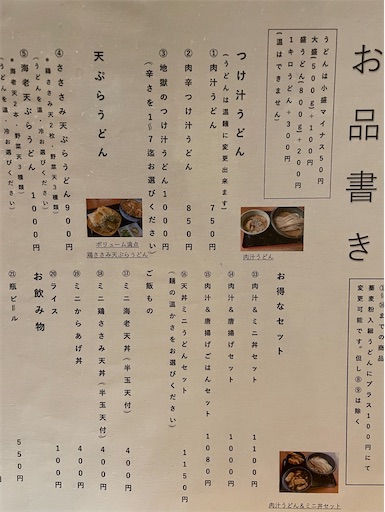 お品書き
うどんは小盛マイナス50円
大盛(500g)+100円
盛うどん(800g)+200円
1キロうどん+300円
(温はできません)
つけ汁うどん
(うどんは温麺に変更出来ます)
①肉汁うどん 750円
②肉辛汁うどん 850円
③地獄のつけ汁うどん1000円
(辛さを1〜7迄お選びください)
肉汁うどん
天ぷらうどん
④ささみ天ぷらうどん900円
*鶏ささみ天2松・野菜天3種類
(うどんを温・冷お選びください)
⑤海老天ぷらうどん 1000円
*海老天2本・野菜天3種類
(うどんを温・冷お選びください)
ボリューム満点
鶏ささみ天ぷらうどん
までの商品
蕎麦粉入細うどんにプラス100円にて
変更可能です。但し⑧⑨は除く
お得なセット
肉汁&ミニ丼セット 1100円
⑭肉汁&唐揚げセット 1000円
⑮肉汁&唐揚げごはんセット 1080円
⑯天丼ミニうどんセット 1150円
(麺の温かさをお選びください)
ご飯もの
⑰ミニ海老天丼(半玉天付) 400円
⑱ミニ鶏ささみ天丼(半玉天付) 400円
⑲ミニからあげ丼 400円
⑳ライス 100円
お飲み物
㉑瓶ビール 550円
肉汁うどん&ミニ丼セット